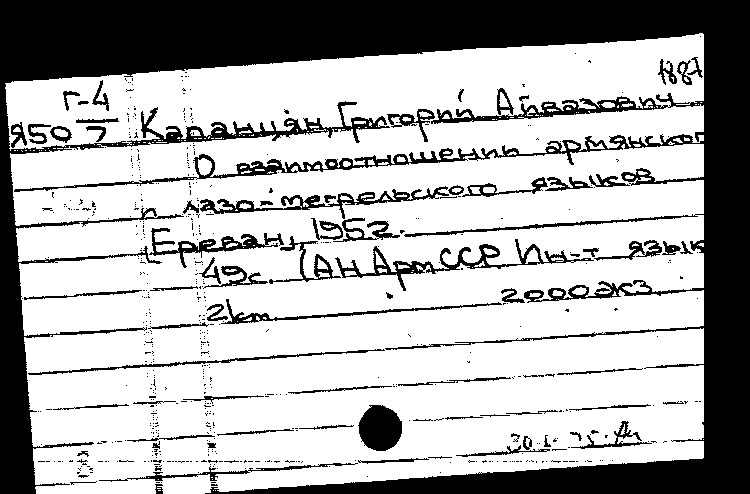 1887
Г-4
Я50 7 Капанцян, Григорий Айвазович
О взаимоотношении армянског
и лазо-мегрельского языков
[Ереван], 1952.
49с. (АН АрмССР Ин-т язык
2km 2000экз.